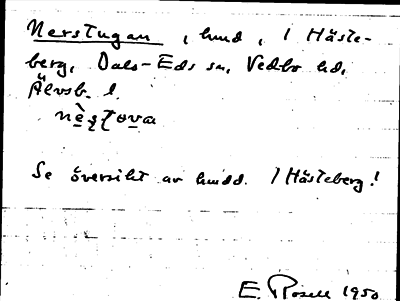 Nerstugan, hmd, i Häste-
berg, Dals-Eds sn, Vedbo hd,
Älvsb. l.
nè̱ṣṭo̱va
Se översikt av hmdd. i Hästeberg!
E. Rosell 1950